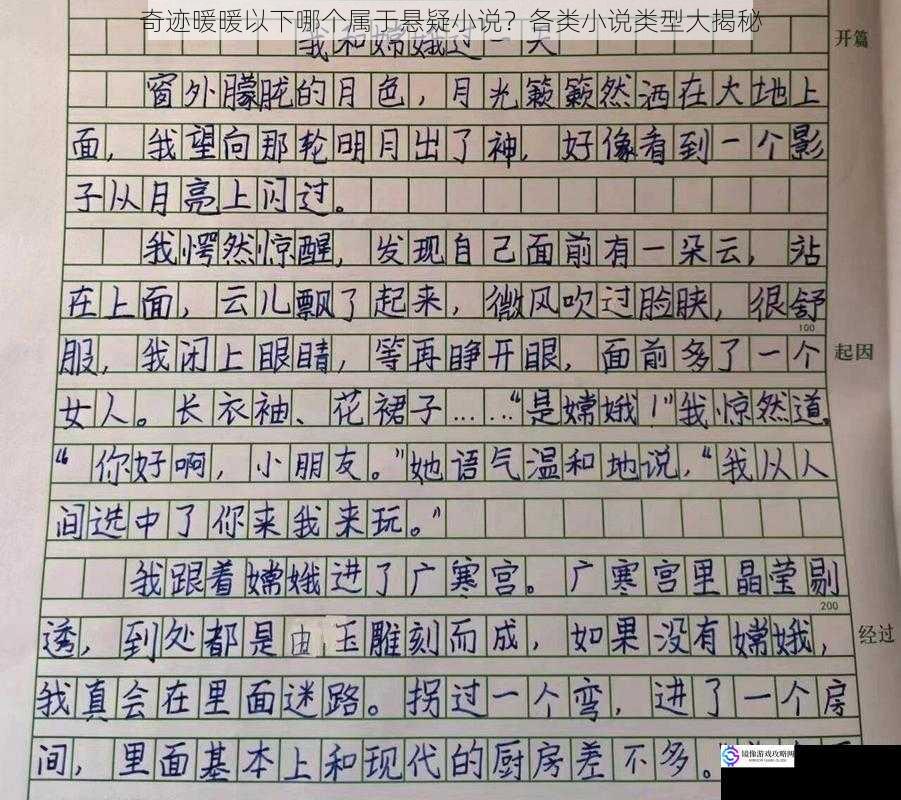 奇迹暖暖以下哪个属于悬疑小说？各类小说类型大揭秘
我和嫦娥过一天
开篇
窗外朦胧的月色，月光簌簌然洒在大地上
面，我望向那轮明月出了神，好像看到一个影
子从月亮上闪过。
我愕然惊醒，发现自己面前有一朵云，站
在上面，云儿飘了起来，微风吹过脸颊，很舒
100
服，我闭上眼睛，等再睁开眼，面前多了一个
起因
女人。长衣袖、花裙子……“是嫦娥！”我惊然道。
“你好啊，小朋友。”她语气温和地说，“我从人
间选中了你来我来玩。”
我跟着嫦娥进了广寒宫。广寒宫里晶莹剔
200
透，到处都是由玉雕刻而成，如果没有嫦娥，
经过
我真会在里面迷路。拐过一个弯，进了一个房
间，里面基本上和现代的厨房差不多。
镜像游戏攻略网